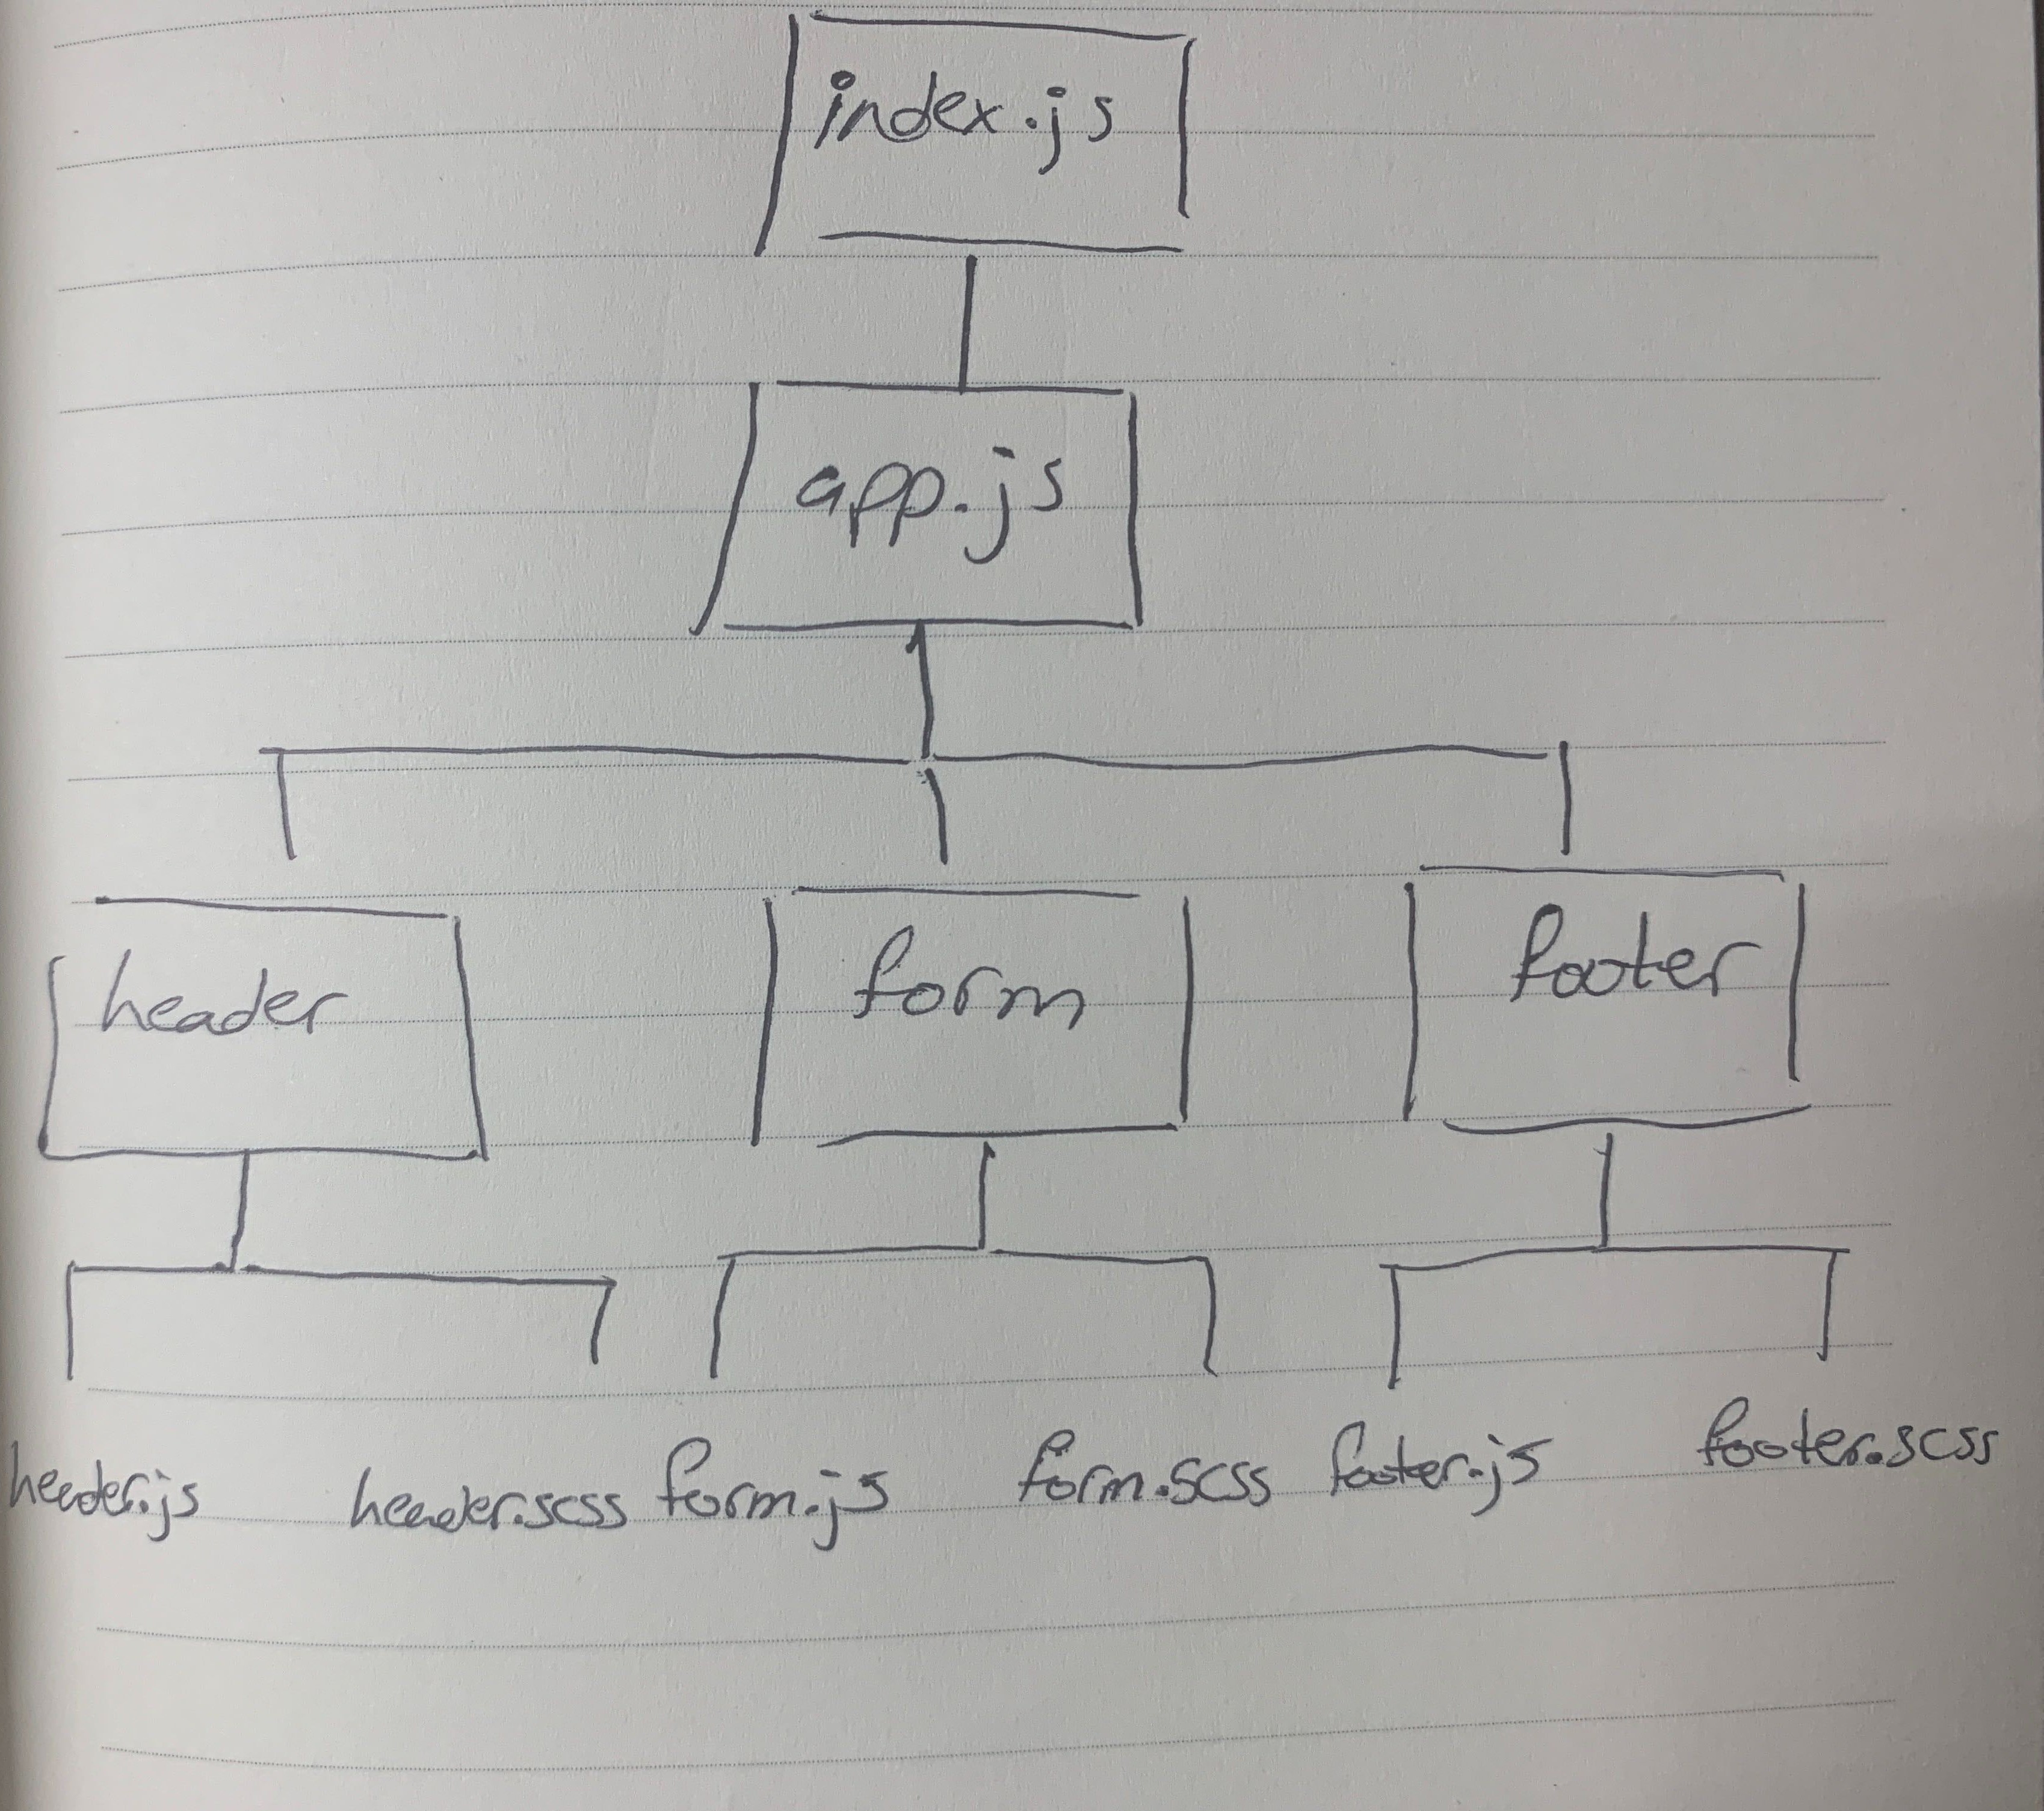 index.js
app.js
header
form
footer
header.js
header.scss
form.js
form.scss
footer.js
footer.scss